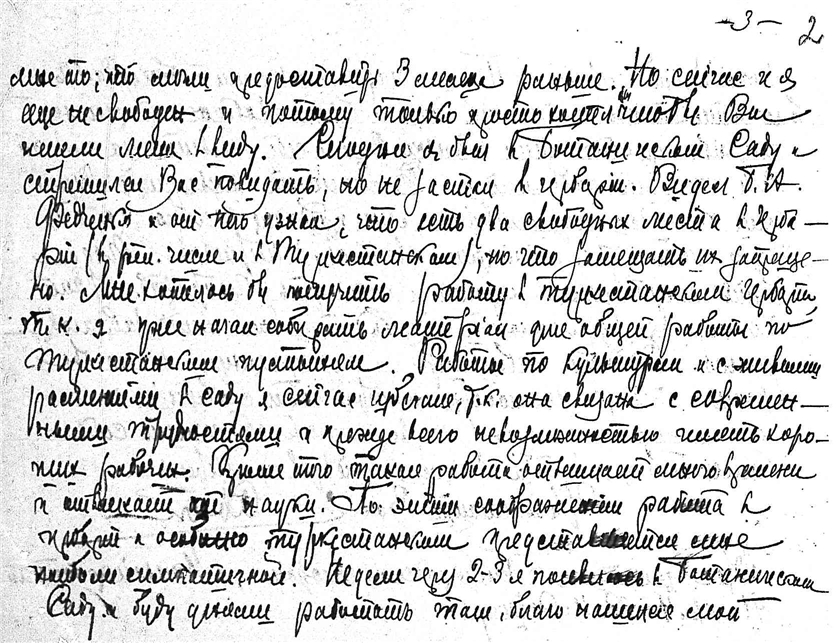 -3- 2
мне то, что могли предоставить 3 месяца раньше. Но сейчас и я
еще не свободен и потому только просто чтобы Вы
имели меня в виду. Сегодня я был в Ботаническом Саду и
стремился Вас повидать, но не застал в гербарии. Видел Б. А.
Федченко и от него узнал, что есть два свободных места в герба-
рии (в том числе и в Туркестанском), но что замещать их запреще-
но. Мне хотелось бы получить работу в туркестанском гербарии,
т. к. я уже начал собирать материал для общей работы по
туркестанским пустыням. Работы по культурам и с живыми
растениями в саду я сейчас избегаю, т. к. она связана с современ-
ными трудностями и прежде всего невозможностью иметь хоро-
ших рабочих. Кроме того такая работа отнимает много времени
и отвлекает от науки. По этим соображениям работа в
гербарии и особенно туркестанском представляется мне
наиболее симпатичной. Недели через 2-3 я появлюсь в Ботаническом
Саду и буду днями работать там, благо нашелся мой